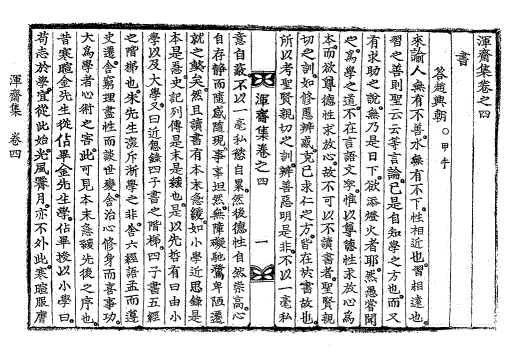 渾齋集卷之四
書
答趙興朝 ○甲午
來諭人無有不善水無有不下性相近也習相遠也
習之善則聖云云等言論已是自知學之方也而又
有求助之說無乃是日下欲添燈火者耶然愚嘗聞
之爲學之道不在言語文字惟以尊德性求放心爲
本而欲尊德性求放心故不可以不讀書者聖賢親
切之訓如修慝辨惑克己求仁之方皆在於書故也
所以考聖賢親切之訓辨善惡明是非不以一毫私
渾齋集卷之四
一
意自蔽不以一毫私慾自累然後德性自然崇高心
自存靜而隨感隨現事事坦然無障礙馳騖卑陋遷
就之獘矣然且讀書有本末急緩如小學近思錄是
本是急史記列傳是末是緩也是以先哲有曰由小
學以及大學又曰近思錄四子書之階梯四子書五經
之階梯也朱先生深斥浙學之非舍六經語孟而遵
史遷舍窮理盡性而談世變舍治心修身而喜事功
大爲學者心術之害此可見本末急緩先後之序也
昔寒暄金先生從佔畢金先生學佔畢授以小學曰
苟志於學宜從此始光風霽月亦不外此寒暄服膺
渾齋集 卷四